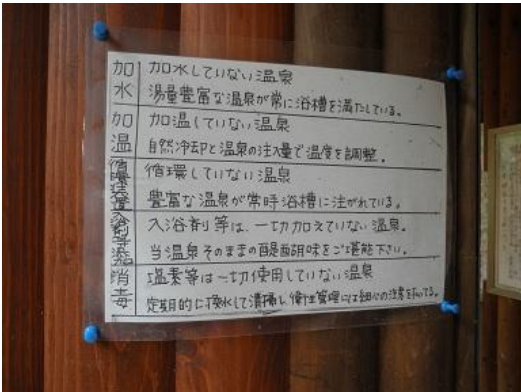 加水
加水していない温泉
湯量豊富な温泉が常に浴槽を満たしている。
加温
加温していない温泉
自然冷却と温泉の注入量で温度を調整。
循環装置
循環していない温泉
豊富な温泉が常時浴槽に注がれている。
入浴剤等添加
入浴剤等は、一切加えていない温泉。
当温泉そのままの醍醐味をご堪能下さい。
消毒
塩素等は一切使用していない温泉
定期的に換水して清掃し衛生管理には細心の注意を